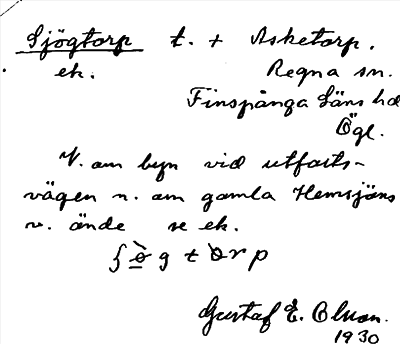 Sjögtorp t. + Asketorp.
ek. Regna sn.
Finspånga Läns hd
Ögl.
V. om byn vid utfarts-
vägen n. om gamla Hemsjöns
v. ände se ek.
Gustaf E. Olson.
1930